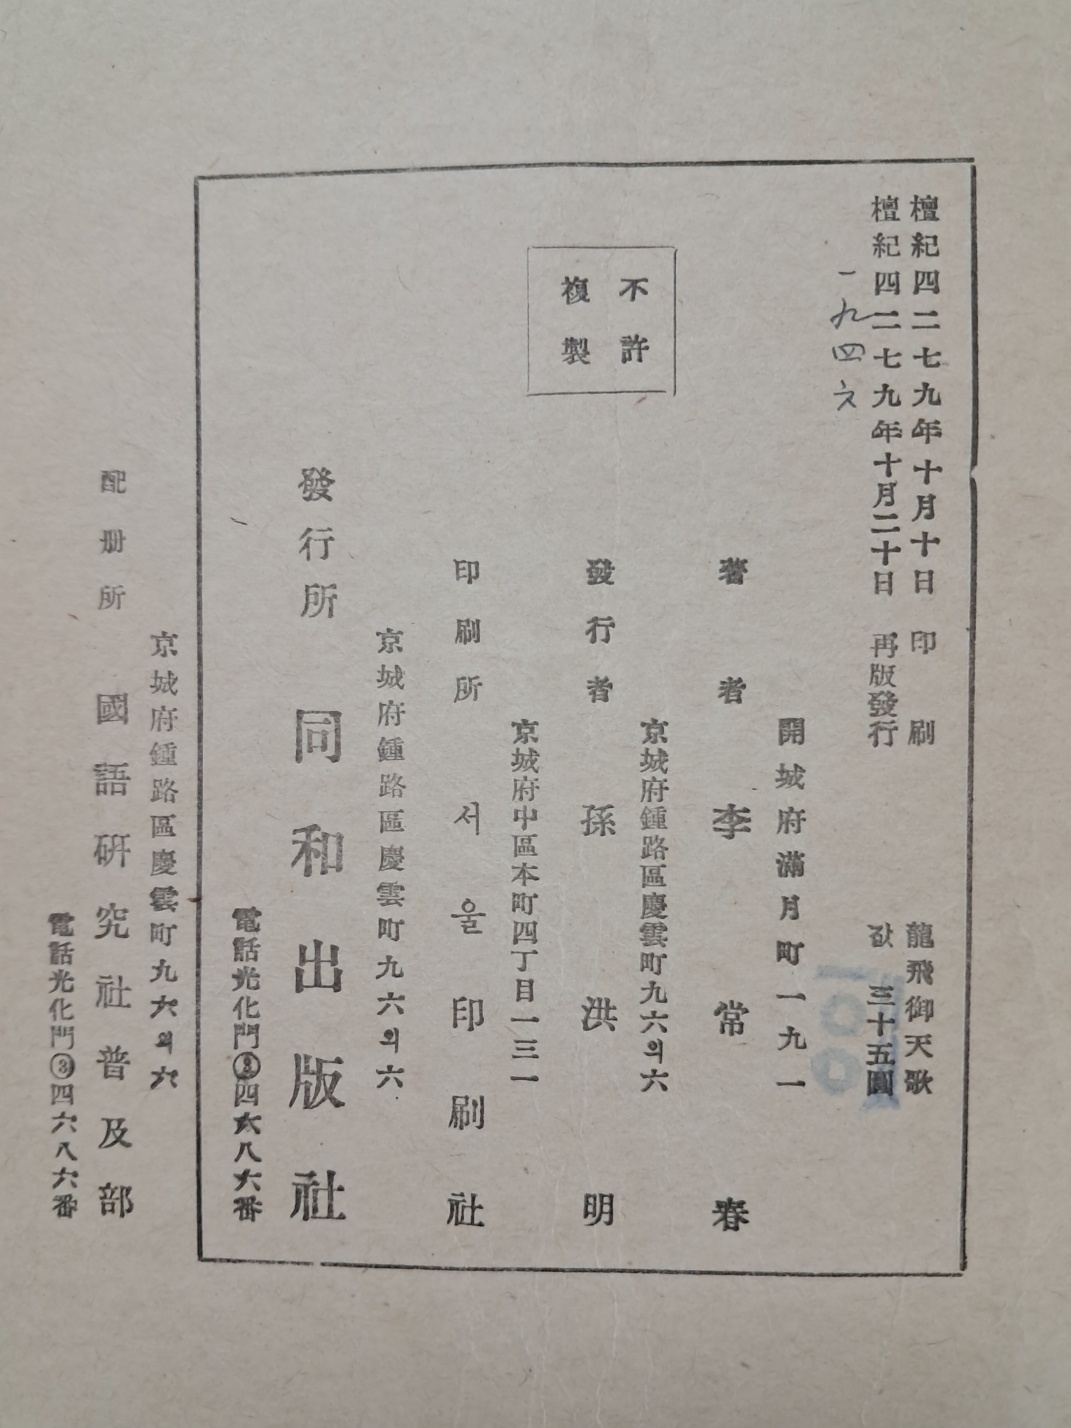 檀紀四二七九年十月十日 印刷
檀紀四二七九年十月二十日 再版發行
一九四六
龍飛御天歌
값 三十五圓
不許
複製
開城府滿月町一九一
著者 李常春
京城府鍾路區慶雲町九六의六
發行者 孫洪明
京城府中區本町四丁目一三一
印刷所 서울印刷社
京城府鍾路區慶雲町九六의六
發行所 同和出版社
電話光化門③四六八六番
京城府鍾路區慶雲町九六의六
配册所 國語硏究社普及部
電話光化門③四六八六番